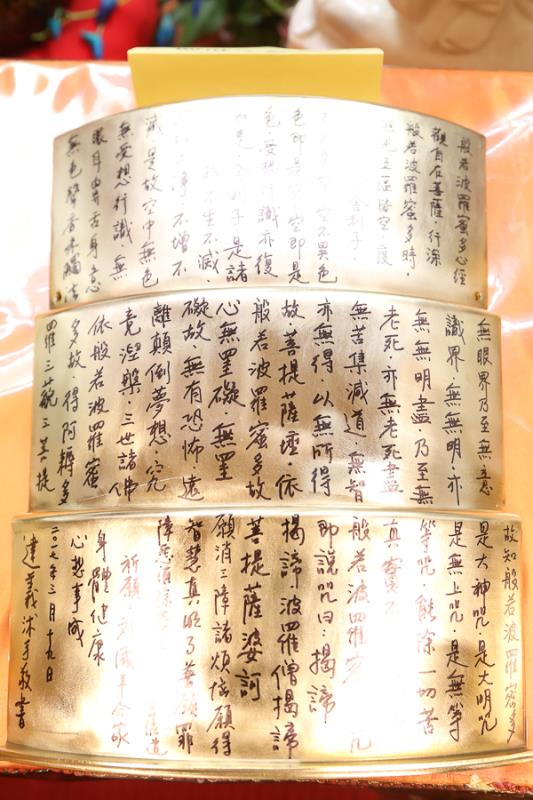 般若波羅蜜多心經
觀自在菩薩·行深
般若波羅蜜多時·
照見五蘊皆空·度
舍利子·
空不異色
色即是 空即是
色·受想行識·亦復
如是·舍利子·是諸
不生不滅·
淨 不增不
減·是故空中無色
無受想行識·無
眼耳鼻舌身意
無色聲香味觸法
無眼界乃至無意
識界·無無明·亦
無無明盡乃至無
老死·亦無老死盡
無苦集滅道·無智
亦無得·以無所得
故·菩提薩埵·依
般若波羅蜜多故
心無罣礙·無罣
礙故·無有恐怖·遠
離顛倒夢想·究
竟涅槃·三世諸佛
依般若波羅蜜
多故·得阿耨多
羅三藐三菩提
故知般若波羅蜜多
是大神咒·是大明咒
是無上咒·是無等
等咒·能除一切苦
真實不
般若波羅蜜 咒
即說咒曰·揭諦
揭諦波羅僧揭諦
菩提薩婆訶
願消三障諸煩惱願得
智慧真明了普願罪
障悉消除 菩薩道
祈願
身體健康
心想事成
二〇一七年三月十九日
達義沐手敬書